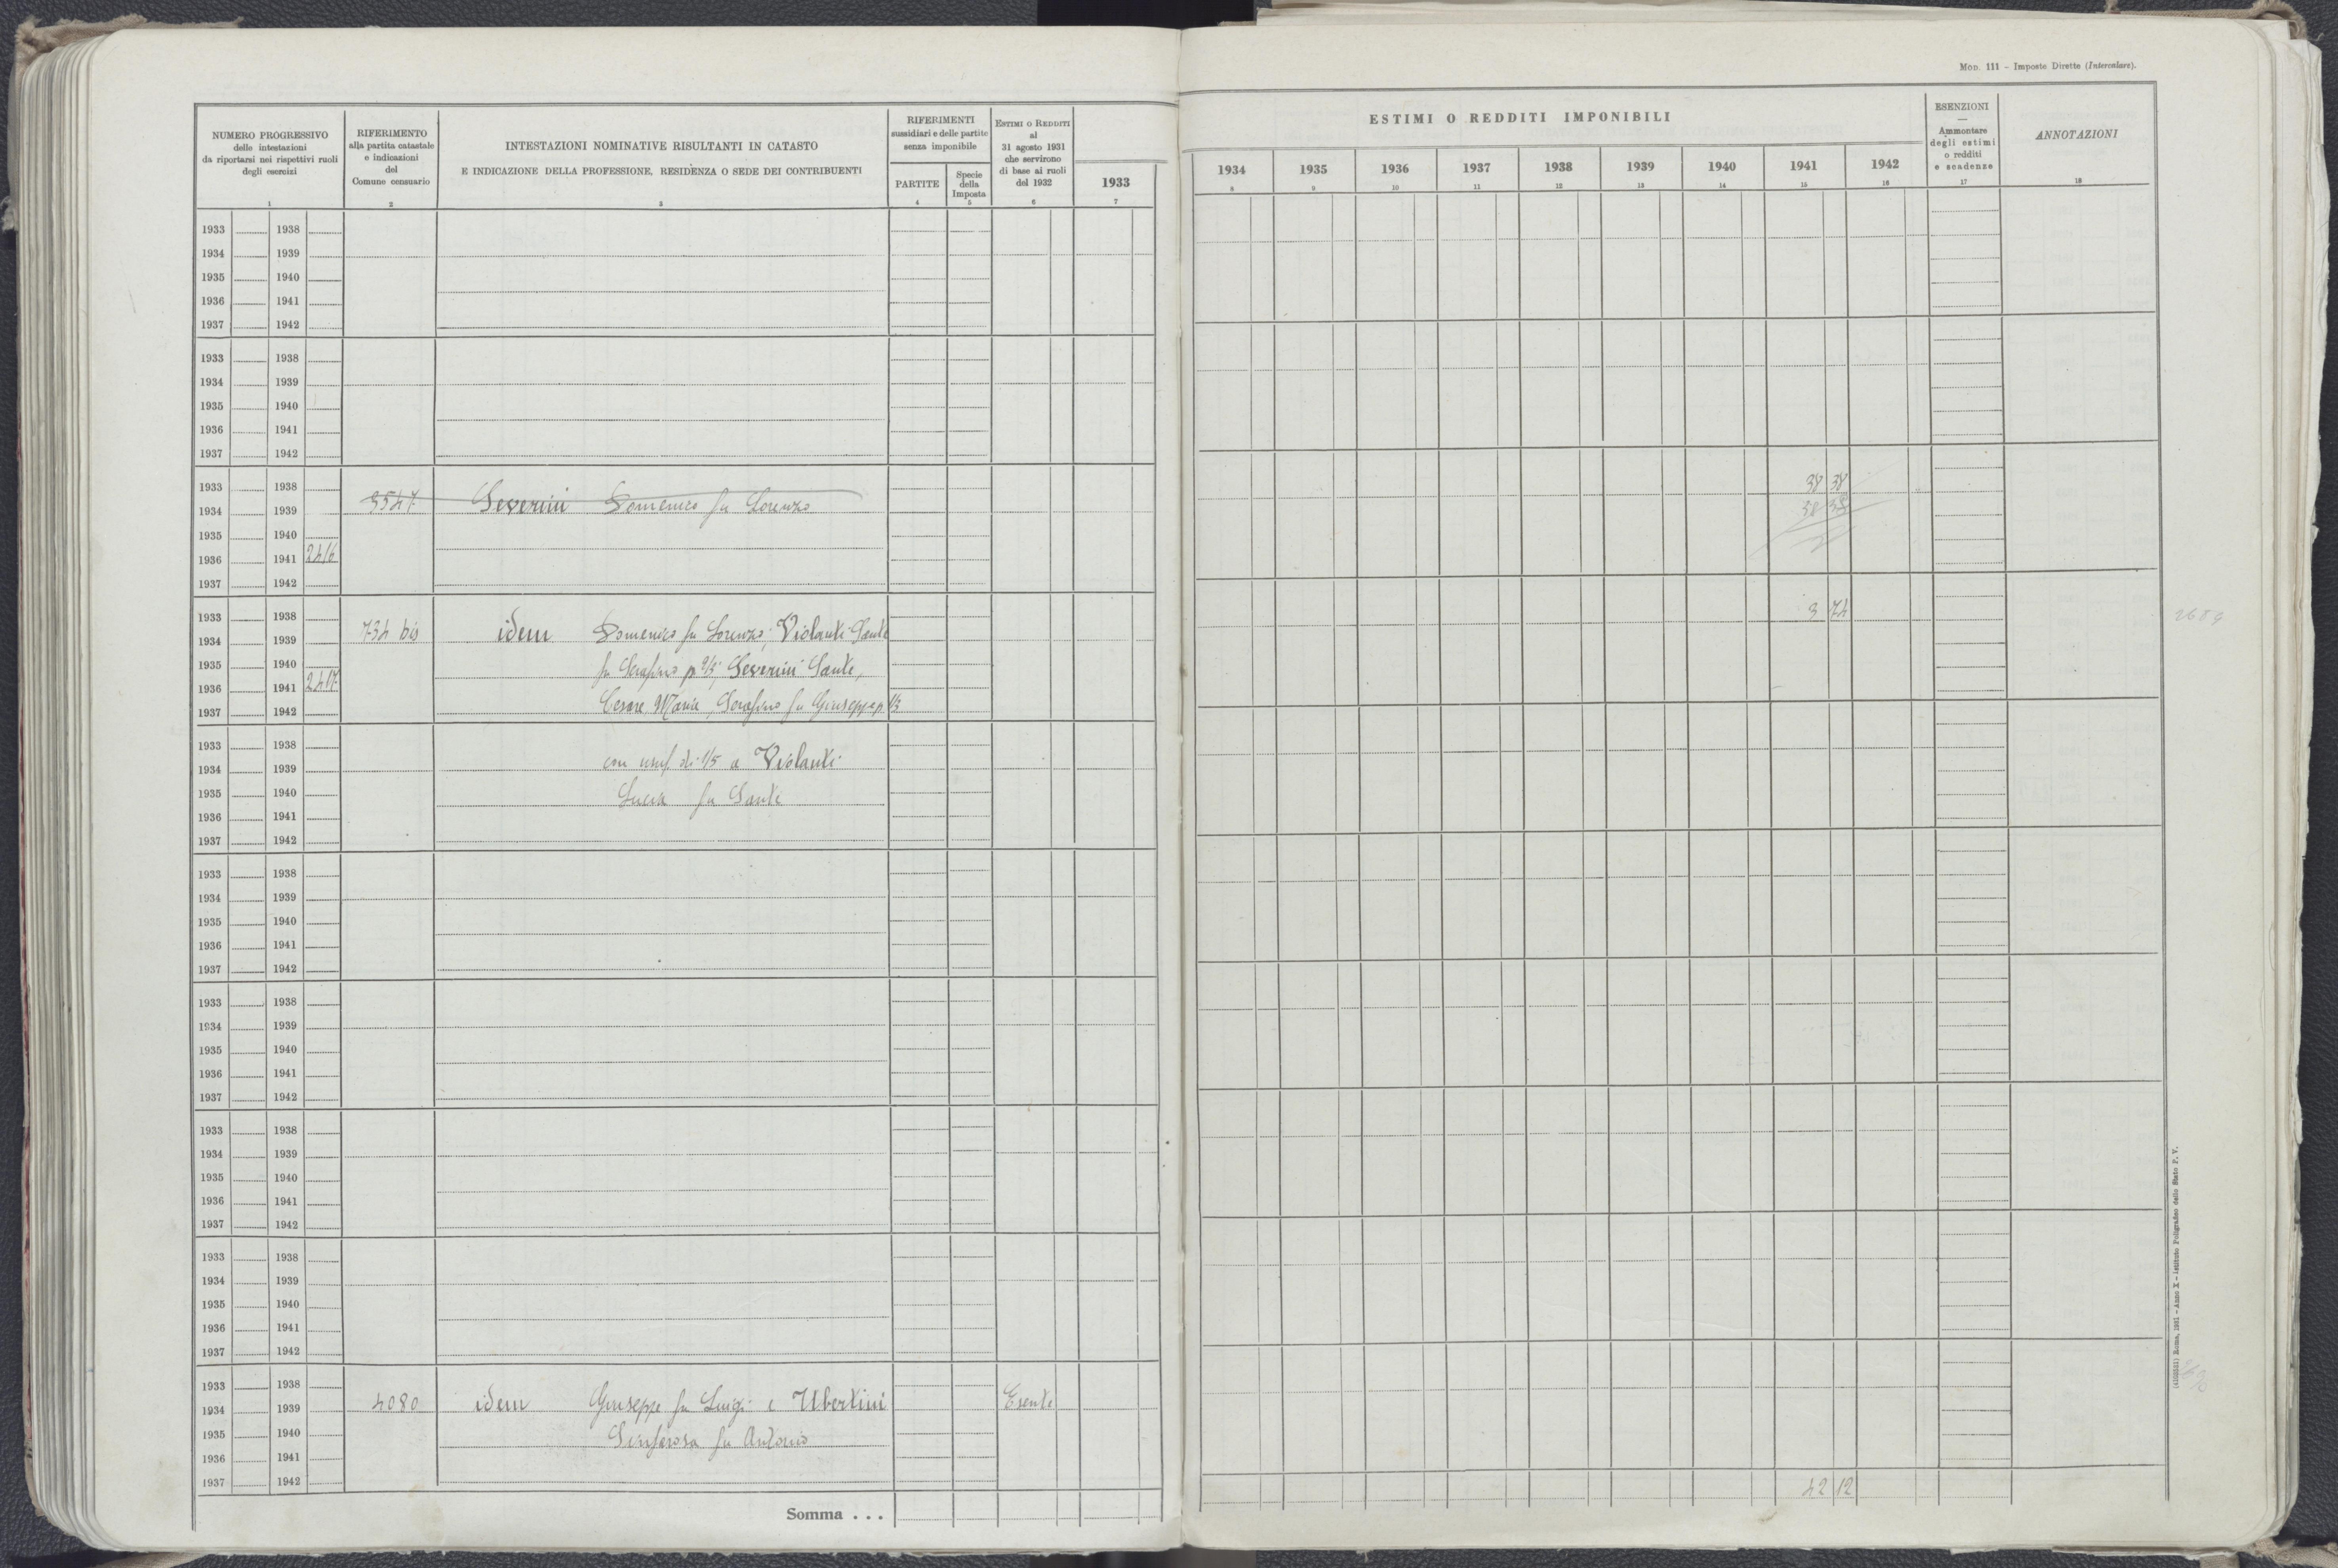 Mod. 111 – Imposte Dirette (Intercalare).
NUMERO PROGRESSIVO
delle intestazioni
da riportarsi nei rispettivi ruoli
degli esercizi
1
RIFERIMENTO
alla partita catastale
e indicazioni
del
Comune censuario
2
INTESTAZIONI NOMINATIVE RISULTANTI IN CATASTO
E INDICAZIONE DELLA PROFESSIONE, RESIDENZA O SEDE DEI CONTRIBUENTI
3
RIFERIMENTI
sussidiari e delle partite
senza imponibile
PARTITE
4
Specie
della
Imposta
5
ESTIMI O REDDITI
al
31 agosto 1931
che servirono
di base ai ruoli
del 1932
6
1933
7
ESTIMI O REDDITI IMPONIBILI
1934 1935 1936 1937 1938 1939 1940 1941 1942
8 9 10 11 12 13 14 15 16
ESENZIONI
—
Ammontare
degli estimi
o redditi
e scadenze
17
ANNOTAZIONI
18
1933 1938
1934 1939
1935 1940
1936 1941
1937 1942
1933 1938
1934 1939
1935 1940
1936 1941
1937 1942
1933 1938 38 38
1934 1939 3547 Severini Domenico fu Lorenzo 38 38
1935 1940
1936 1941 2416
1937 1942
1933 1938 3 74
1934 1939 734 bis idem Domenico fu Lorenzo; Violanti Sante
1935 1940 fu Serafino p 2/3; Severini Sante,
1936 1941 2417
1937 1942 Cesare, Maria, Serafino fu Giuseppe p 1/3
1933 1938
1934 1939 con usuf. di 1/5 a Violanti
1935 1940 Lucia fu Sante
1936 1941
1937 1942
1933 1938
1934 1939
1935 1940
1936 1941
1937 1942
1933 1938
1934 1939
1935 1940
1936 1941
1937 1942
1933 1938
1934 1939
1935 1940
1936 1941
1937 1942
1933 1938
1934 1939
1935 1940
1936 1941
1937 1942
1933 1938
1934 1939 4080 idem Giuseppe fu Luigi e Ubertini Esente
1935 1940 Sinforosa fu Antonio
1936 1941
1937 1942
Somma . . . 42 12
(4100551) Roma, 1931 – Anno X – Istituto Poligrafico dello Stato P. V.